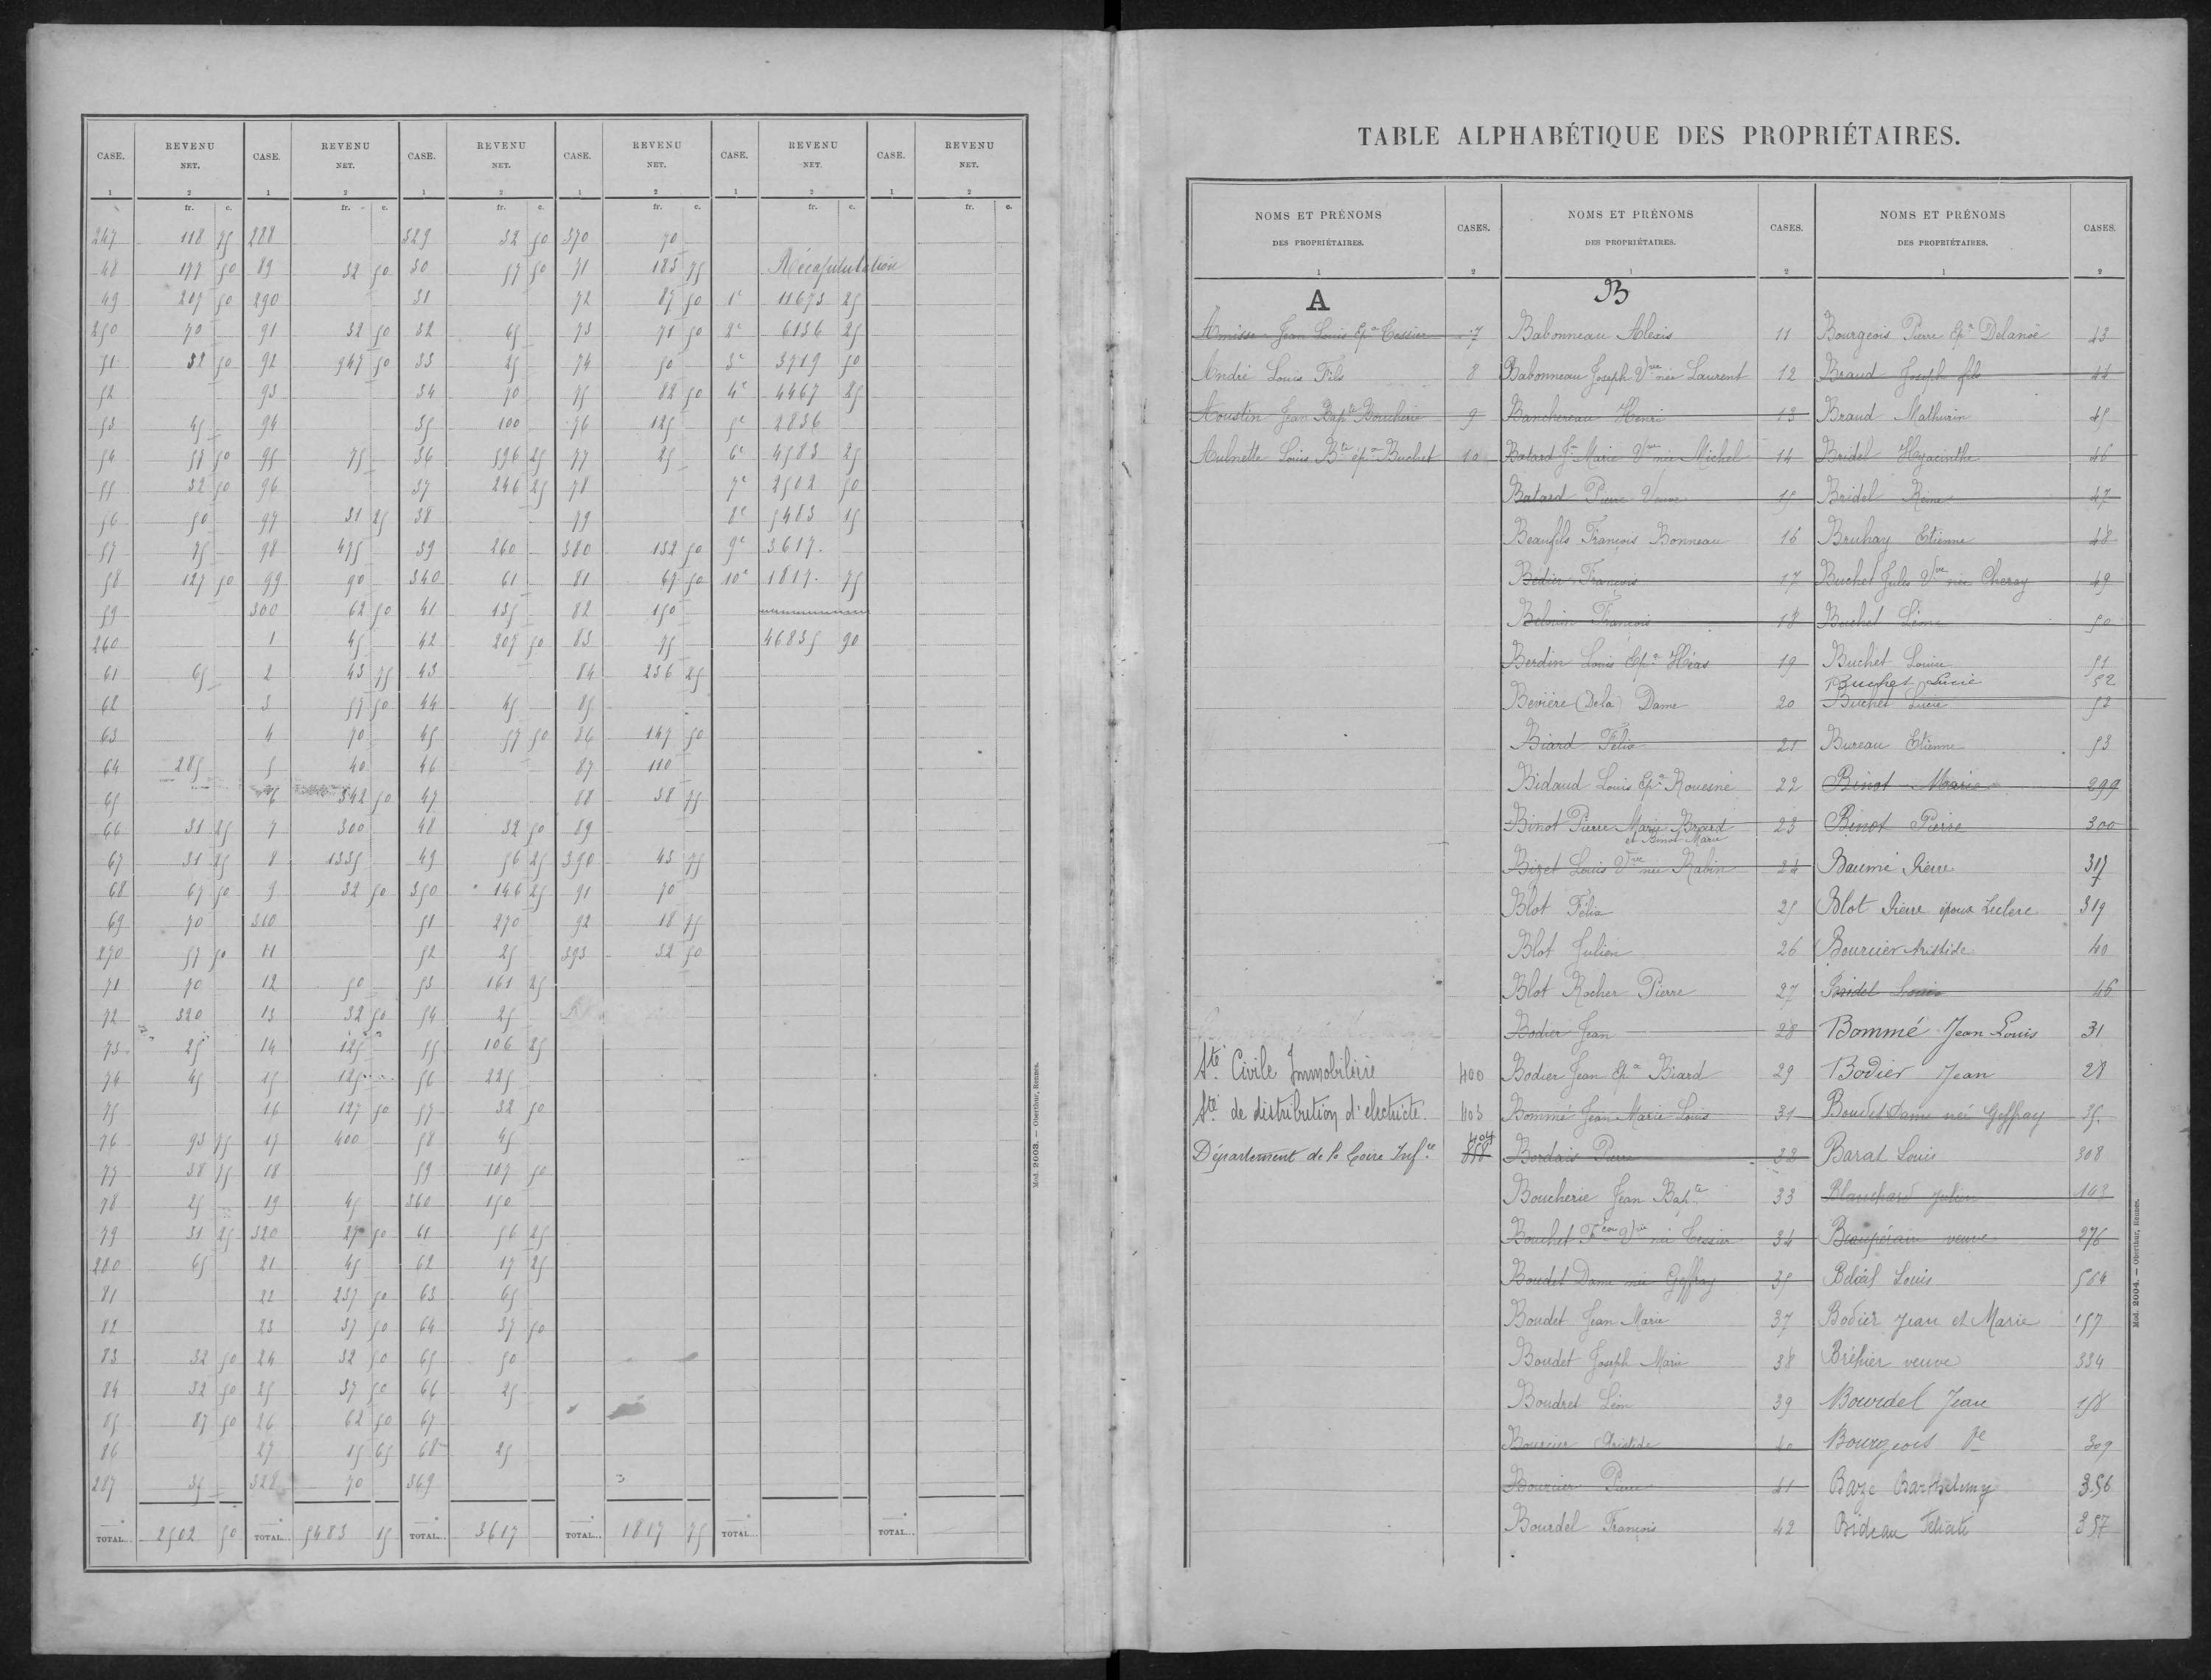 CASE. REVENU NET. CASE. REVENU NET. CASE. REVENU NET. CASE. REVENU NET. CASE. REVENU NET. CASE. REVENU NET.
1 2 1 2 1 2 1 2 1 2 1 2
fr. c. fr. c. fr. c. fr. c. fr. c. fr. c.
247 118 75 288 329 32 50 370 70
48 177 50 89 32 50 30 57 50 71 183 75 Récapitulation
49 207 50 290 31 72 87 50 1e 11673 25
250 70 91 32 50 32 65 73 71 50 2e 6136 25
51 32 50 92 947 50 33 25 74 50 3e 3719 50
52 93 34 70 75 82 50 4e 4467 25
53 45 94 35 100 76 125 5e 2836
54 57 50 95 75 36 596 25 77 25 6e 4583 25
55 32 50 96 37 246 25 78 7e 2502 50
56 50 97 31 25 38 79 8e 5483 15
57 75 98 475 39 260 380 132 50 9e 3617.
58 127 50 99 90 340 61 81 67 50 10e 1817. 75
59 300 62 50 41 135 82 150
260 1 45 42 207 50 83 75 46835 90
61 65 2 43 75 43 84 236 25
62 3 57 50 44 45 85
63 4 70 45 57 50 86 147 50
64 285 5 40 46 87 110
65 6 342 50 47 88 38 75
66 31 25 7 300 48 32 50 89
67 31 25 8 1335 49 56 25 390 43 75
68 67 50 9 32 50 350 146 25 91 70
69 70 310 51 270 92 18 75
270 57 50 11 52 25 393 32 50
71 70 12 50 53 161 25
72 320 13 32 50 54 25
73 25 14 125 55 106 25
74 45 15 125 56 225
75 16 127 50 57 32 50
76 93 75 17 400 58 45
77 38 75 18 59 107 50
78 25 19 45 360 150
79 31 25 320 27 50 61 56 25
280 65 21 45 62 17 25
81 22 237 50 63 65
82 23 37 50 64 37 50
83 32 50 24 32 50 65 50
84 32 50 25 37 50 66 25
85 87 50 26 62 50 67
86 27 15 65 68 25
287 35 328 70 369
TOTAL... 2502 50 TOTAL... 5483 15 TOTAL... 3617 TOTAL... 1817 75 TOTAL... TOTAL...
Mod. 2003. — Oberthur, Rennes.
TABLE ALPHABÉTIQUE DES PROPRIÉTAIRES.
NOMS ET PRÉNOMS DES PROPRIÉTAIRES. CASES. NOMS ET PRÉNOMS DES PROPRIÉTAIRES. CASES. NOMS ET PRÉNOMS DES PROPRIÉTAIRES. CASES.
1 2 1 2 1 2
A
Amisse Jean Louis Epx Tessier 7
André Louis Fils 8
Aoustin Jean Bapte Boucherie 9
Aulnette Louis Bte épx Buchet 10
Sté Civile Immobilière 400
Sté de distribution d'electricité 403
Département de la Loire Infre 404
B
Babonneau Alexis 11
Babonneau Joseph Vve née Laurent 12
Banchereau Henri 13
Batard Jn Marie Vve née Michel 14
Batard Pierre Veuve 15
Beaufils François Bonneau 16
Bédier François 17
Belouin François 18
Berdin Louis Epx Héas 19
Bévière (De la) Dame 20
Biard Félix 21
Bidaud Louis Epx Rouesné 22
Binot Pierre Marie Briand 23
et Binot Marie
Bizet Louis Vve née Rabin 24
Blot Félix 25
Blot Julien 26
Blot Rocher Pierre 27
Bodier Jean 28
Bodier Jean Epx Biard 29
Bommé Jean Marie Louis 31
Bordais Pierre 32
Boucherie Jean Bapte 33
Bouchet Fcou Vve née Tessier 34
Boudet Dame née Geffray 35
Boudet Jean Marie 37
Boudet Joseph Marie 38
Boudret Léon 39
Bourcier Aristide 40
Bourcier Pierre 41
Bourdel François 42
Bourgeois Pierre Epx Delanoë 43
Braud Joseph fils 44
Braud Mathurin 45
Bridel Hyacinthe 46
Bridel Reine 47
Bruhay Etienne 48
Buchet Jules Vve née Cheray 49
Buchet Léon 50
Buchet Louise 51
Buchet Lucie 52
Buchet Lucie 52
Bureau Etienne 53
Binot Marie 299
Binot Pierre 300
Baumé Pierre 317
Blot Pierre époux Leclerc 319
Bourcier Aristide 40
Bridel Louis 46
Bommé Jean Louis 31
Bodier Jean 28
Boudet Dame née Geffray 35.
Barat Louis 308
Blanchard Julien 143
Beaupérin veuve 276
Beloeil Louis 564
Bodier Jean et Marie 157
Bréhier veuve 334
Bourdel Jean 158
Bourgeois Ve 309
Baze Barthelemy 356
Bideau Félicité 357
Mod. 2004. — Oberthur, Rennes.